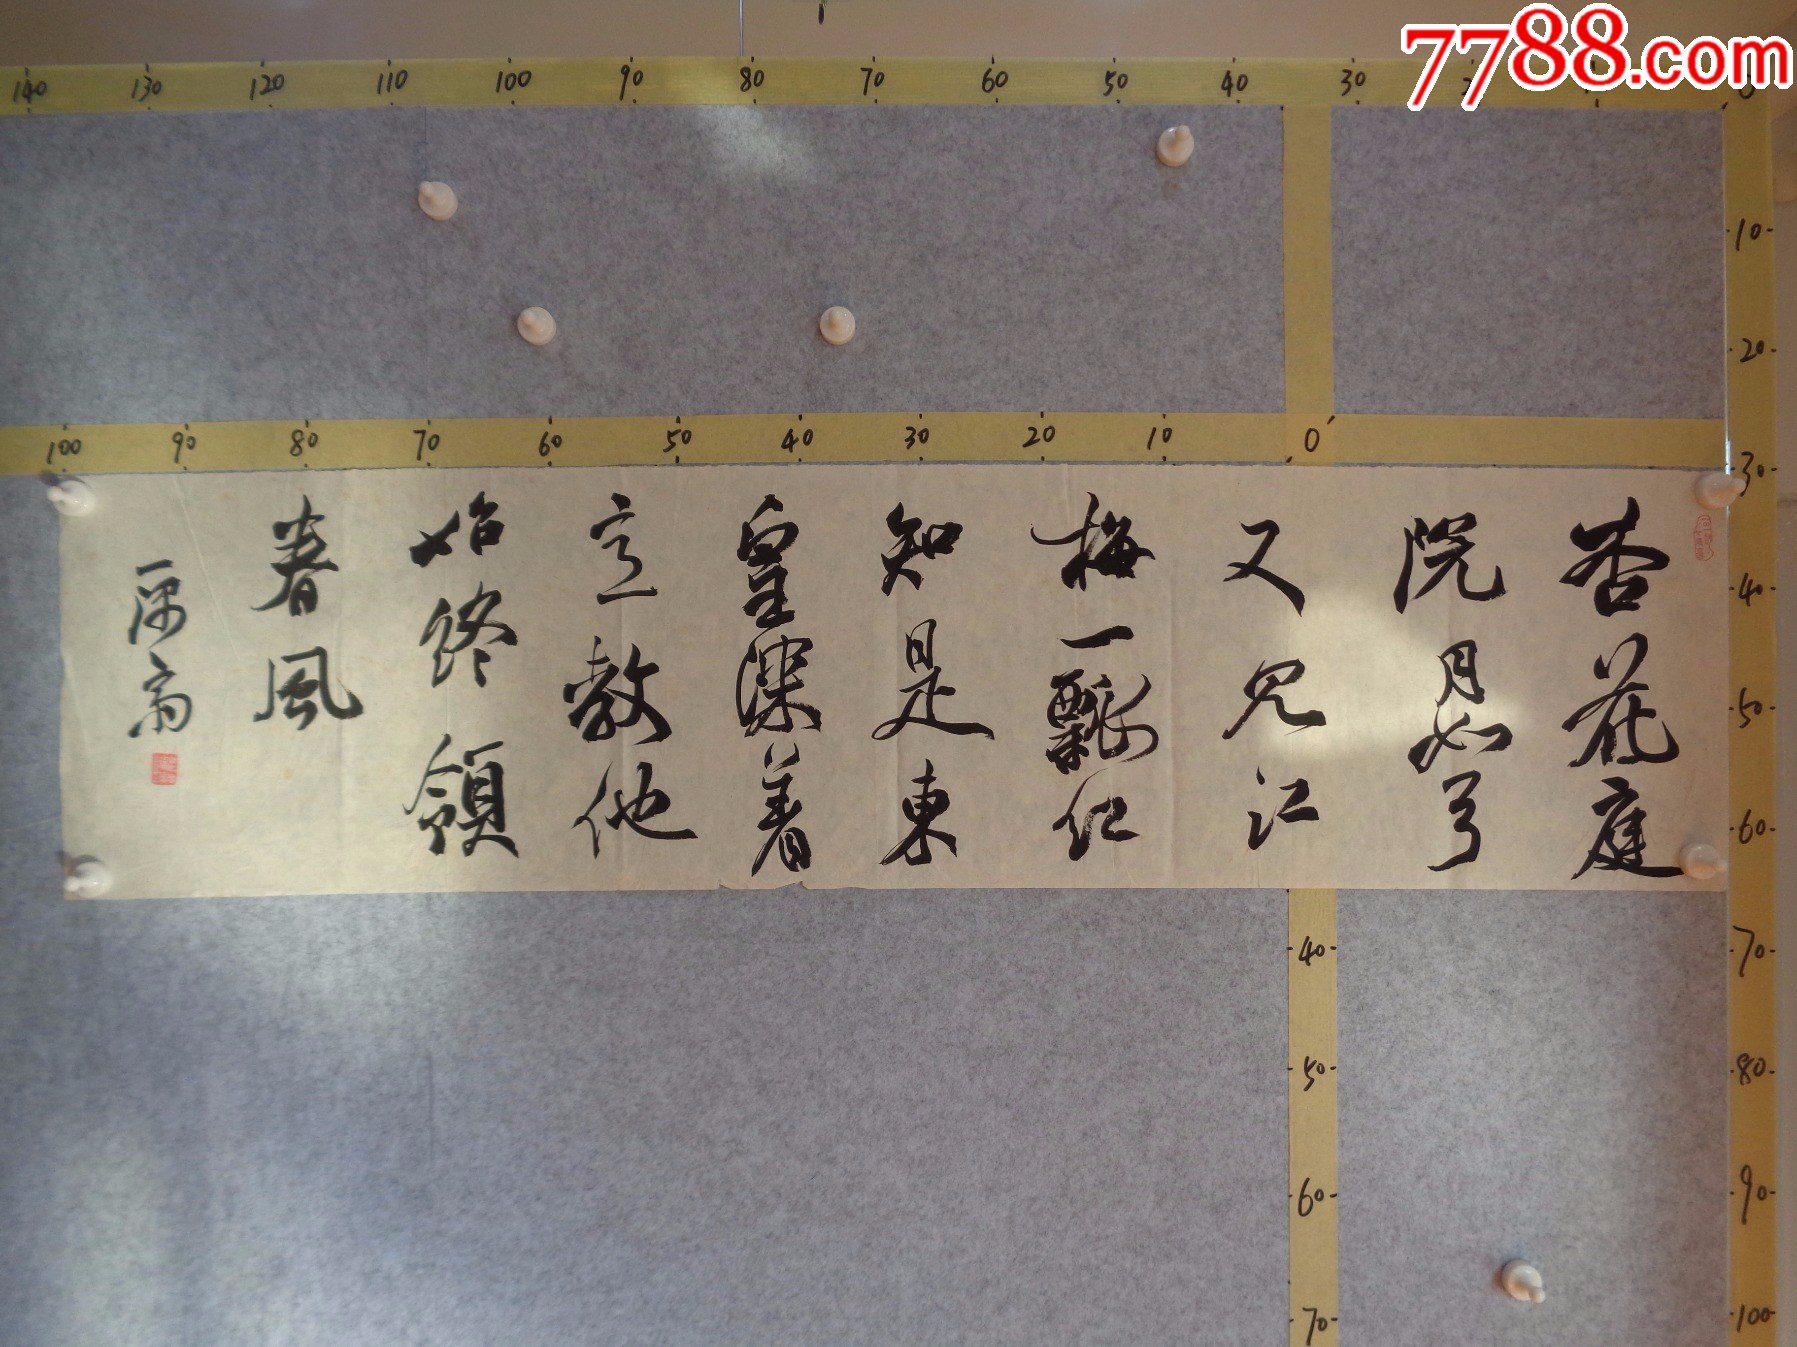 7788.com
140 130 120 110 100 90 80 70 60 50 40 30
100 90 80 70 60 50 40 30 20 10 0
杏花庭
院月如弓
又见江
梅一瓢红
知是東
皇深着
意教他
始终領
春風
10
20
30
40
50
60
70
80
90
100
40
50
60
70